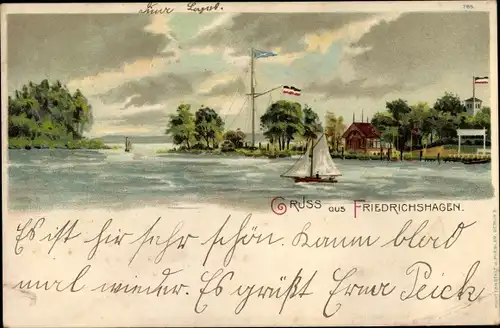 785.
GRUSS aus FRIEDRICHSHAGEN.
Es ist hir sehr schön. Kamm blad
mal wieder. Es grüßt Erna Peick